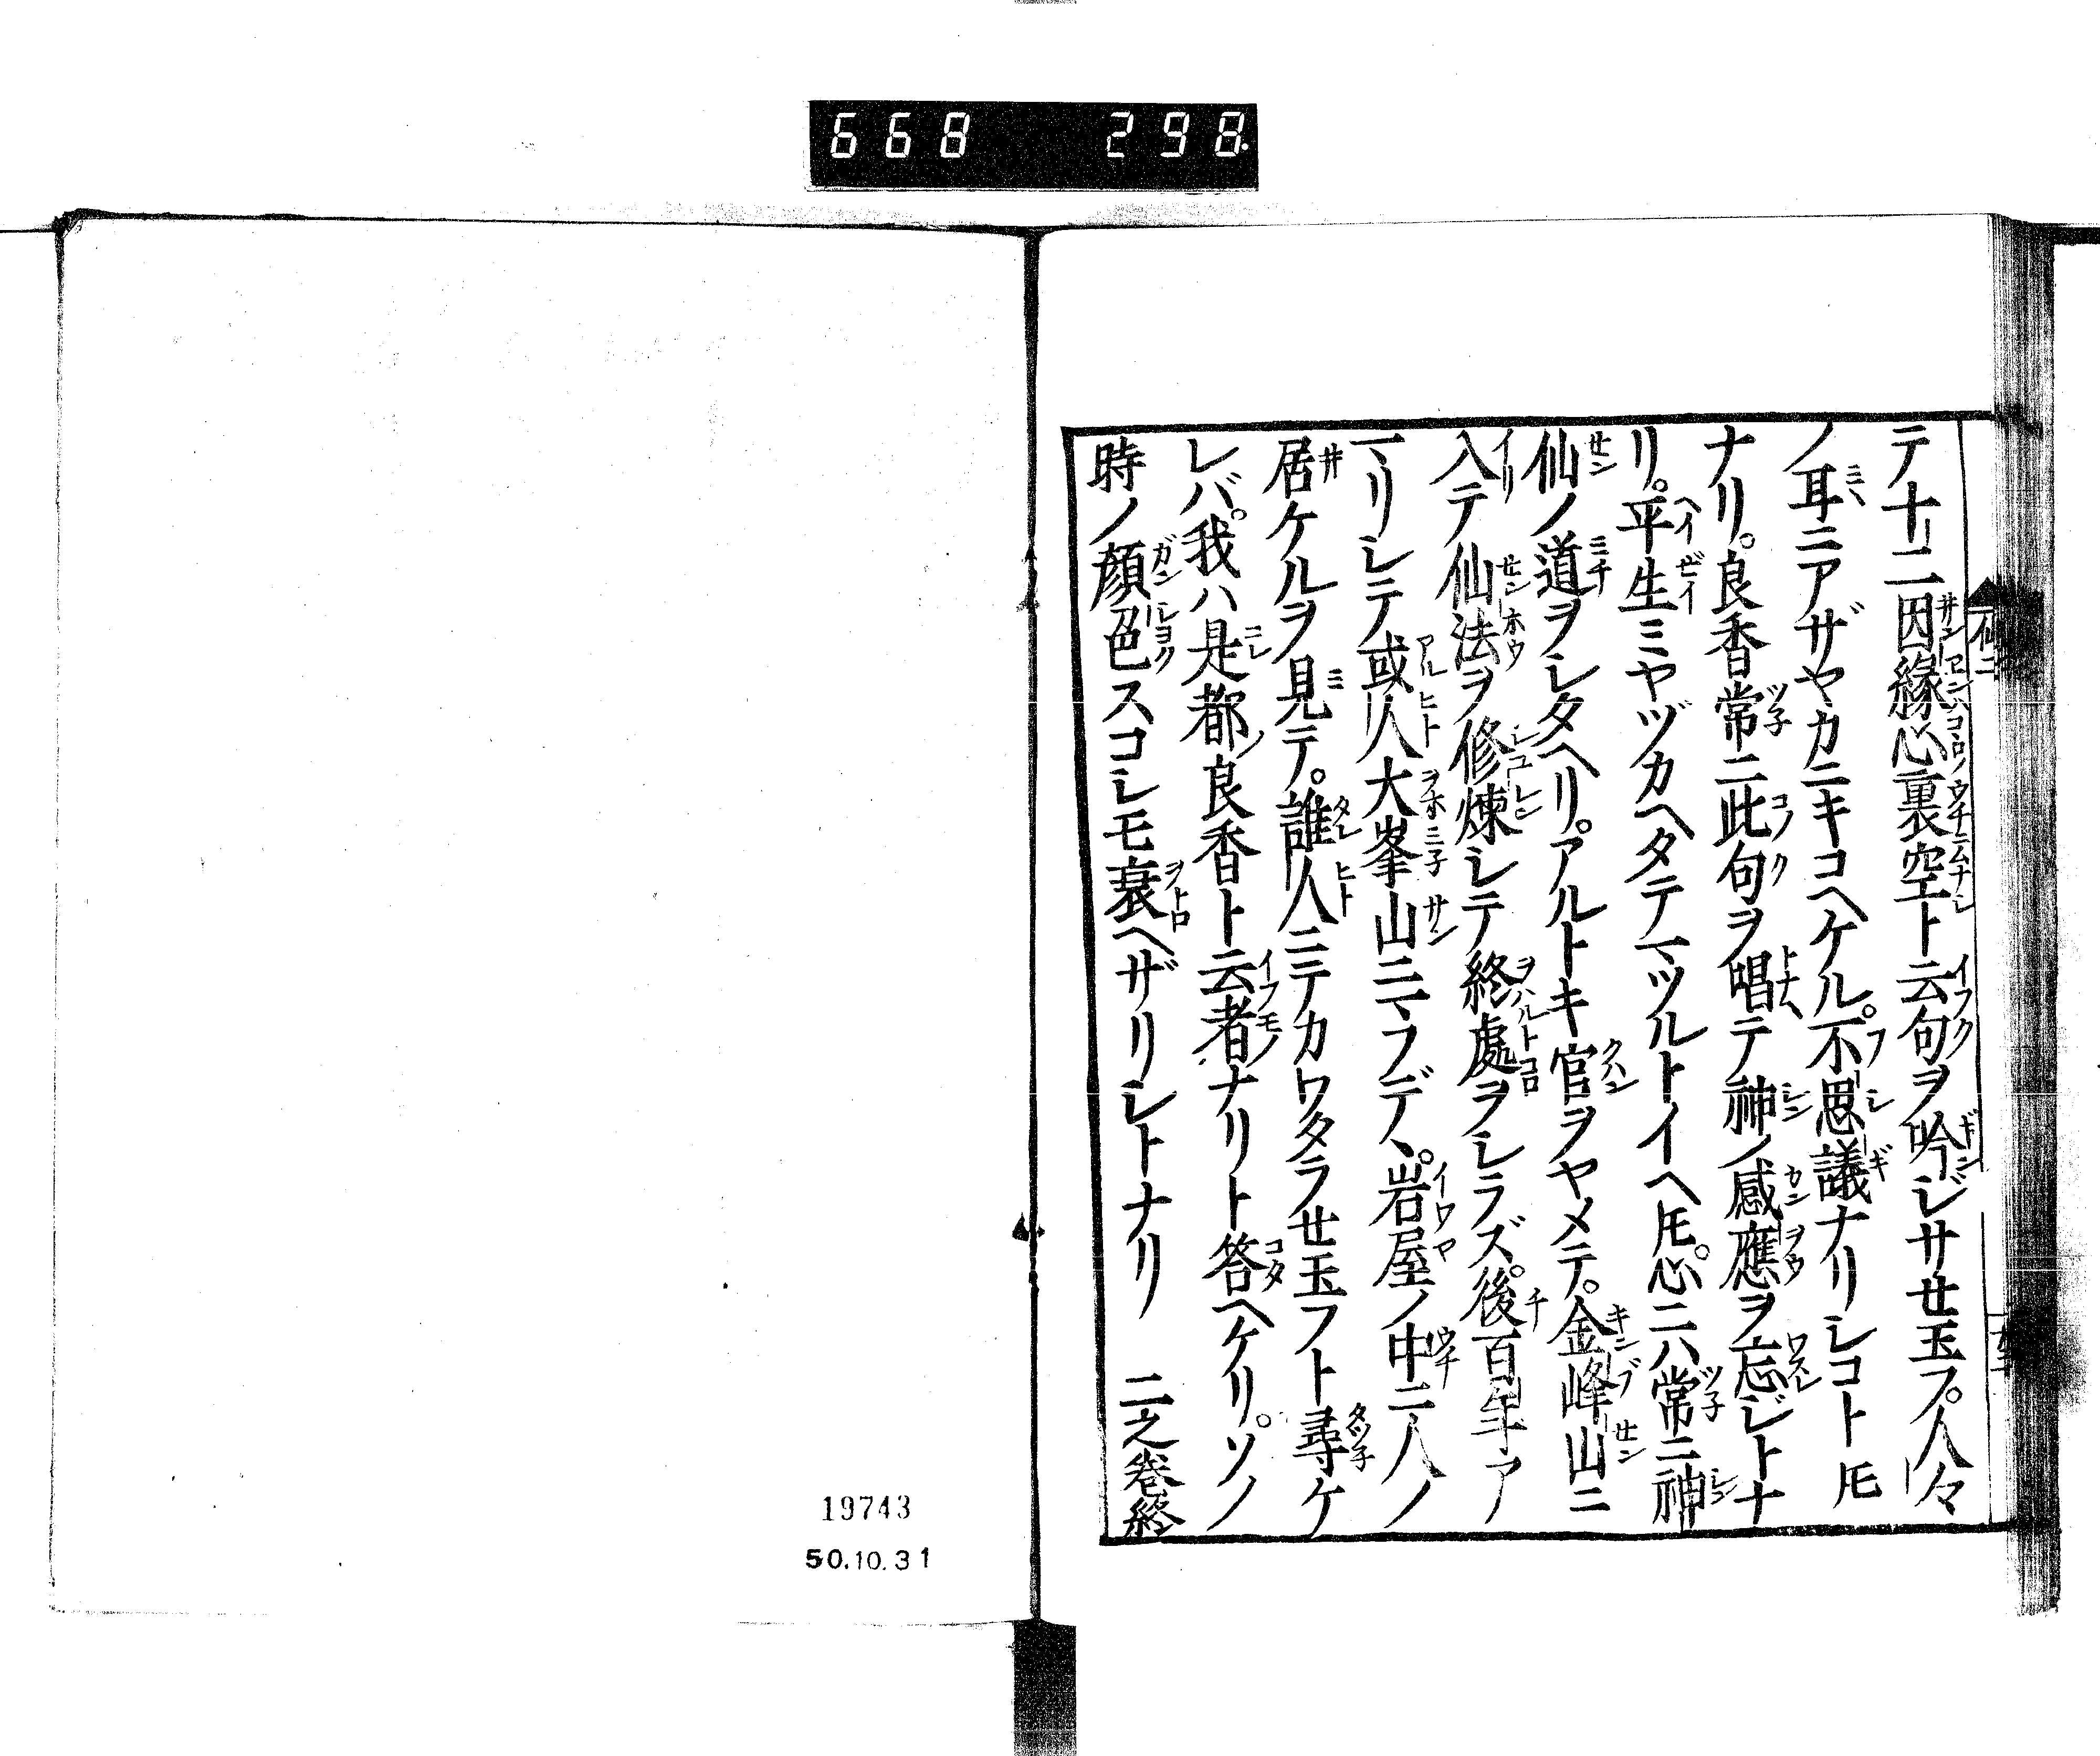 668 298
テ十二因縁心裏空ト云句ヲ吟ジサせ玉フ。人々
ノ耳ニアザヤカニキコヘケル。不思議ナリシコトㇳモ
ナリ。良香常ニ此句ヲ唱テ神ノ感應ヲ忘ジトナ
リ。平生ミヤヅカヘタテマツルトイヘㇳモ。心ニハ常ニ神
仙ノ道ヲシタヘリ。アルトキ官ヲヤメテ。金峰山ニ
入テ仙法ヲ修煉シテ終處ヲシラズ。後百年ア
マリシテ或人大峯山ニマフデヽ。岩屋ノ中ニ人ノ
居ケルヲ見テ。誰人ニテカワタラせ玉フト尋ケ
レバ。我ハ是都ノ良香ト云者ナリト答ヘケリ。ソノ
時ノ顔色スコシモ衰ヘザリシトナリ 二之巻終
19743
50.10.31